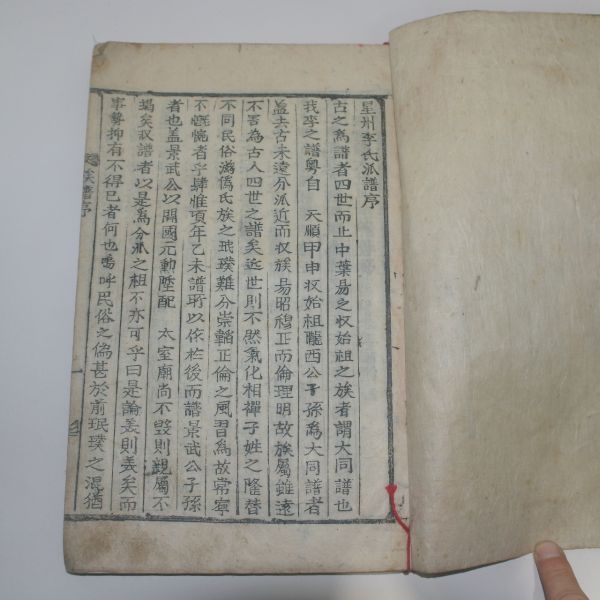 星州李氏派譜序
古之爲譜者四世而止中葉易之収始祖之族者謂大同譜也
我李之譜粤自 天順甲申収始祖隴西公子孫爲大同譜者
盖去古未遠分派近而収族易昭穆正而倫理明故族屬雖遠
不啻為古人四世之譜矣近世則不然氣化相禪子姓之隆替
不同民俗淆僞氏族之珉璞難分崇韜正倫之風習爲故常寧
不慨惋者乎肆惟頃年乙未譜所以依於後而譜景武公子孫
者也盖景武公以開國元勳陞配 太室廟尚不毁則親屬不
竭矣収譜者以是爲分派之祖不亦可乎曰是論義則義矣而
事勢抑有不得已者何也嗚呼民俗之僞甚於前珉璞之混猶
族譜序